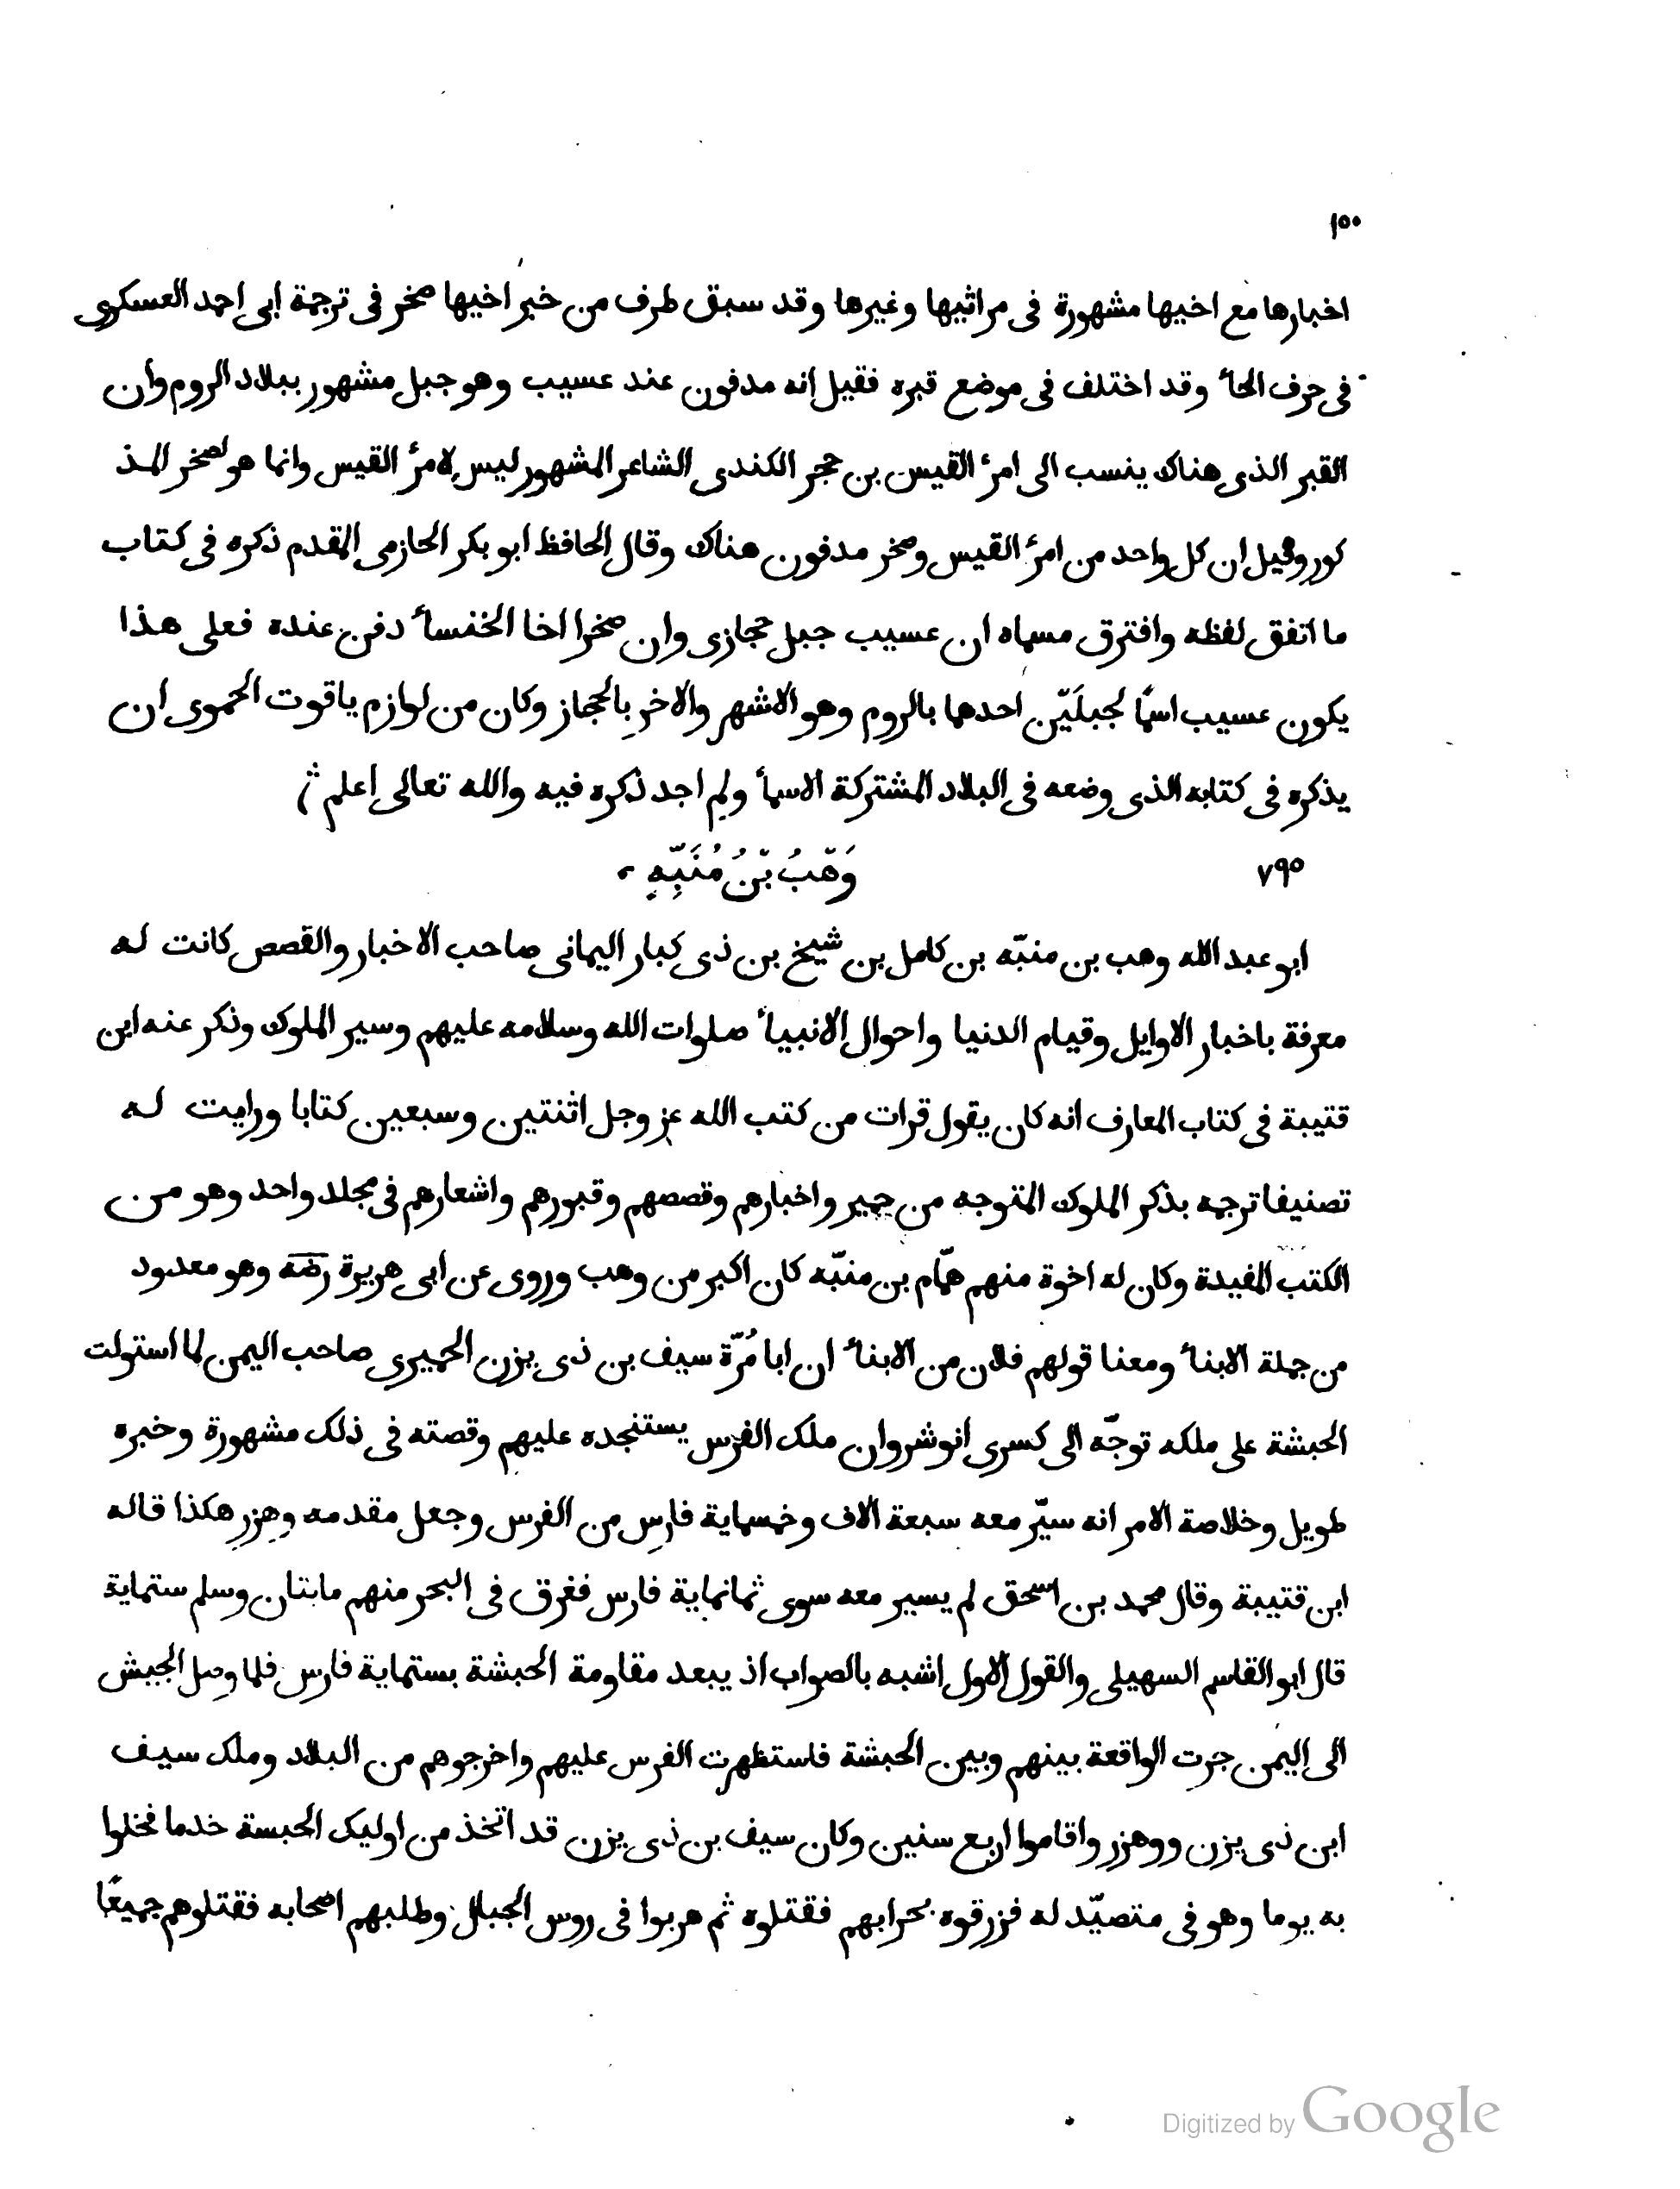 ١٥٠
اخبارها مع اخيها مشهورة فى مراثيها وغيرها وقد سبق طرف من خبر اخيها صخر فى ترجمة ابى احمد العسكرى
فى حرف الحاء وقد اختلف فى موضع قبره فقيل انه مدفون عند عسيب وهو جبل مشهور ببلاد الروم وان
القبر الذى هناك ينسب الى امرئ القيس بن حجر الكندى الشاعر المشهور ليس لامرئ القيس وانما هو لصخر المذ
كور وقيل ان كل واحد من امرئ القيس وصخر مدفون هناك وقال الحافظ ابو بكر الحازمى المقدم ذكره فى كتاب
ما اتفق لفظه وافترق مسماه ان عسيب جبل حجازى وان صخرا اخا الخنساء دفن عنده فعلى هذا
يكون عسيب اسمًا لجبلَيّن احدهما بالروم وهو الاشهر والاخر بِالحجاز وكان من لوازم ياقوت الحموى ان
يذكره فى كتابه الذى وضعه فى البلاد المشتركة الاسماء ولم اجد ذكره فيه والله تعالى اعلم
٧٩٥ وَهْبُ بْنُ مُنَبِّهٍ
ابو عبد الله وهب بن منبّه بن كامل بن شيخ بن ذى كبار اليمانى صاحب الاخبار والقصص كانت له
معرفة باخبار الاوايل وقيام الدنيا واحوال الانبياء صلوات الله وسلامه عليهم وسير الملوك وذكر عنه ابن
قتيبة فى كتاب المعارف انه كان يقول قرات من كتب الله عز وجل اثنتين وسبعين كتابا ورايت له
تصنيفا ترجمه بذكر الملوك المتوجه من حمير واخبارهم وقصصهم وقبورهم واشعارهم فى مجلد واحد وهو من
الكتب المفيدة وكان له اخوة منهم همّام بن منبّه كان اكبر من وهب وروى عن ابى هريرة رضه وهو معدود
من جملة الابناء ومعنا قولهم فلان من الابناء ان ابا مُرّة سيف بن ذى يزن الحميرى صاحب اليمن لما استولت
الحبشة على ملكه توجّه الى كسرى انوشروان ملك الفرس يستنجده عليهم وقصته فى ذلك مشهورة وخبره
طويل وخلاصة الامر انه سيّر معه سبعة الاف وخمسماية فارس من الفرس وجعل مقدمه وهزر هكذا قاله
ابن قتيبة وقال محمد بن اسحق لم يسير معه سوى ثمانماية فارس فغرق فى البحر منهم مايتان وسلم ستماية
قال ابو القاسم السهيلى والقول الاول اشبه بالصواب اذ يبعد مقاومة الحبشة بستماية فارس فلما وصل الجيش
الى اليمن جرت الواقعة بينهم وبين الحبشة فاستظهرت الفرس عليهم واخرجوهم من البلاد وملك سيف
ابن ذى يزن ووهزر واقاموا اربع سنين وكان سيف بن ذى يزن قد اتخذ من اوليك الحبسة خدما فخلوا
به يوما وهو فى متصيّد له فزرقوه بحرابهم فقتلوه ثم هربوا فى روس الجبال وطلبهم اصحابه فقتلوهم جميعًا
Digitized by Google